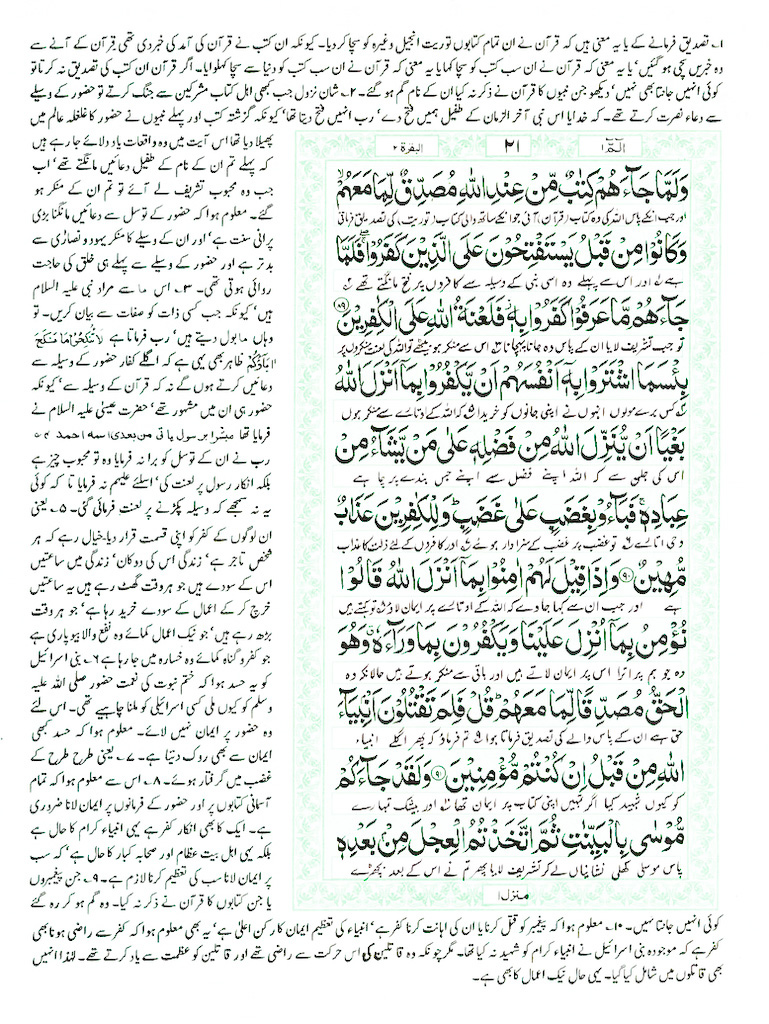 ۱۔ تصدیق فرمانے کے یا یہ معنی ہیں کہ قرآن نے ان تمام کتابوں توریت انجیل وغیرہ کو سچا کر دیا۔ کیونکہ ان کتب نے قرآن کی آمد کی خبر دی تھی قرآن کے آنے سے
وہ خبریں سچی ہو گئیں' یا یہ معنی کہ قرآن نے ان سب کتب کو سچا کہا یا یہ معنی کہ قرآن نے ان سب کتب کو دنیا سے سچا کہلوایا۔ اگر قرآن ان کتب کی تصدیق نہ کرتا تو
کوئی انہیں جانتا بھی نہیں' دیکھو جن نبیوں کا قرآن نے ذکر نہ کیا ان کے نام گم ہو گئے۔ ۲۔ شان نزول جب بھی اہل کتاب مشرکین سے جنگ کرتے تو حضور کے وسیلے
سے دعاء نصرت کرتے تھے۔ کہ خدایا اس نبی آخر الزمان کے طفیل ہمیں فتح دے' رب انہیں فتح دیتا تھا' کیونکہ گزشتہ کتب اور پہلے نبیوں نے حضور کا غلغلہ عالم میں
پھیلا دیا تھا اس آیت میں وہ واقعات یاد دلائے جا رہے ہیں
کہ پہلے تم ان کے نام کے طفیل دعائیں مانگتے تھے' اب
جب وہ محبوب تشریف لے آئے تو تم ان کے منکر ہو
گئے۔ معلوم ہوا کہ حضور کے توسل سے دعائیں مانگنا بڑی
پرانی سنت ہے' اور ان کے وسیلے کا منکر یہود و نصاریٰ سے
بدتر ہے اور حضور کے وسیلے سے پہلے ہی خلق کی حاجت
روائی ہوتی تھی۔ ۳۔ اس ما سے مراد نبی علیہ السلام
ہیں' کیونکہ جب کسی ذات کو صفات سے بیان کریں۔ تو
وہاں ما بول دیتے ہیں' رب فرماتا ہے لَا تَنْكِحُوْا مَا نَكَحَ
اٰبَاؤُكُمْ ظاہر بھی یہی ہے کہ اگلے کفار حضور کے وسیلہ سے
دعائیں کرتے ہوں گے نہ کہ قرآن کے وسیلہ سے' کیونکہ
حضور ہی ان میں مشہور تھے' حضرت عیسیٰ علیہ السلام نے
فرمایا تھا مبشرا برسول یاتی من بعدی اسمہ احمد ۴۔
رب نے ان کے توسل کو برا نہ فرمایا وہ تو محبوب چیز ہے
بلکہ انکار رسول پر لعنت کی' اسلئے علیہم نہ فرمایا تا کہ کوئی
یہ نہ سمجھے کہ وسیلہ پکڑنے پر لعنت فرمائی گئی۔ ۵۔ یعنی
ان لوگوں کے کفر کو اپنی قسمت قرار دیا۔ خیال رہے کہ ہر
شخص تاجر ہے' زندگی اس کی دوکان' زندگی میں ساعتیں
اس کے سودے ہیں جو ہر وقت گھٹ رہے ہیں یہ ساعتیں
خرچ کر کے اعمال کے سودے خرید رہا ہے' جو ہر وقت
بڑھ رہے ہیں' جو نیک اعمال کمائے وہ نفع والا بیوپاری ہے
جو کفر و گناہ کمائے وہ خسارہ میں جا رہا ہے ۶۔ بنی اسرائیل
کو یہ حسد ہوا کہ ختم نبوت کی نعمت حضور صلی اللہ علیہ
وسلم کو کیوں ملی کسی اسرائیلی کو ملنا چاہیے تھی۔ اس لئے
وہ حضور پر ایمان نہیں لائے۔ معلوم ہوا کہ حسد کبھی
ایمان سے بھی روک دیتا ہے۔ ۷۔ یعنی طرح طرح کے
غضب میں گرفتار ہوئے۔ ۸۔ اس سے معلوم ہوا کہ تمام
آسمانی کتابوں پر اور حضور کے فرمانوں پر ایمان لانا ضروری
ہے۔ ایک کا بھی انکار کفر ہے یہی انبیاء کرام کا حال ہے
بلکہ یہی اہل بیت عظام اور صحابہ کبار کا حال ہے' کہ سب
پر ایمان لانا سب کی تعظیم کرنا لازم ہے۔ ۹۔ جن پیغمبروں
یا جن کتابوں کا قرآن نے ذکر نہ کیا۔ وہ گم ہو کر رہ گئے
البقرۃ ۲ ۲۱ الٓمّٓ ۱
وَلَمَّا جَآءَهُمْ كِتٰبٌ مِّنْ عِنْدِ اللّٰهِ مُصَدِّقٌ لِّمَا مَعَهُمْ
اور جب انکے پاس اللہ کی وہ کتاب (قرآن) آئی جو انکے ساتھ والی کتاب (توریت) کی تصدیق فرماتی
وَكَانُوْا مِنْ قَبْلُ يَسْتَفْتِحُوْنَ عَلَى الَّذِيْنَ كَفَرُوْا فَلَمَّا
ہے اور اس سے پہلے وہ اسی نبی کے وسیلہ سے کافروں پر فتح مانگتے تھے
جَآءَهُمْ مَّا عَرَفُوْا كَفَرُوْا بِهٖ فَلَعْنَةُ اللّٰهِ عَلَى الْكٰفِرِيْنَ ۸۹
تو جب تشریف لایا ان کے پاس وہ جانا پہچانا اس سے منکر ہو بیٹھے تو اللہ کی لعنت منکروں پر
بِئْسَمَا اشْتَرَوْا بِهٖٓ اَنْفُسَهُمْ اَنْ يَّكْفُرُوْا بِمَآ اَنْزَلَ اللّٰهُ
کس برے مولوں انہوں نے اپنی جانوں کو خریدا کہ اللہ کے اتارے سے منکر ہوں
بَغْيًا اَنْ يُّنَزِّلَ اللّٰهُ مِنْ فَضْلِهٖ عَلٰى مَنْ يَّشَآءُ مِنْ
اس کی جلن سے کہ اللہ اپنے فضل سے اپنے جس بندے پر چاہے
عِبَادِهٖ فَبَآءُوْ بِغَضَبٍ عَلٰى غَضَبٍ وَلِلْكٰفِرِيْنَ عَذَابٌ
وحی اتارے تو غضب پر غضب کے سزاوار ہوئے اور کافروں کے لئے ذلت کا عذاب
مُّهِيْنٌ ۹۰ وَاِذَا قِيْلَ لَهُمْ اٰمِنُوْا بِمَآ اَنْزَلَ اللّٰهُ قَالُوْا
ہے اور جب ان سے کہا جاوے کہ اللہ کے اتارے پر ایمان لاؤ تو کہتے ہیں
نُؤْمِنُ بِمَآ اُنْزِلَ عَلَيْنَا وَيَكْفُرُوْنَ بِمَا وَرَآءَهٗ وَهُوَ
وہ جو ہم پر اترا اس پر ایمان لاتے ہیں اور باقی سے منکر ہوتے ہیں حالانکہ وہ
الْحَقُّ مُصَدِّقًا لِّمَا مَعَهُمْ قُلْ فَلِمَ تَقْتُلُوْنَ اَنْۢبِيَآءَ
حق ہے ان کے پاس والے کی تصدیق فرماتا ہوا تم فرماؤ کہ پھر اگلے انبیاء
اللّٰهِ مِنْ قَبْلُ اِنْ كُنْتُمْ مُّؤْمِنِيْنَ ۹۱ وَلَقَدْ جَآءَكُمْ
کو کیوں شہید کیا اگر تمہیں اپنی کتاب پر ایمان تھا اور بیشک تمہارے
مُّوْسٰى بِالْبَيِّنٰتِ ثُمَّ اتَّخَذْتُمُ الْعِجْلَ مِنْۢ بَعْدِهٖ
پاس موسٰی کھلی نشانیاں لے کر تشریف لایا پھر تم نے اس کے بعد بچھڑے
منزل ۱
کوئی انہیں جانتا نہیں۔ ۱۰۔ معلوم ہوا کہ پیغمبر کو قتل کرنا یا ان کی اہانت کرنا کفر ہے' انبیاء کی تعظیم ایمان کا رکن اعلیٰ ہے' یہ بھی معلوم ہوا کہ کفر سے راضی ہونا بھی
کفر ہے کہ موجودہ بنی اسرائیل نے انبیاء کرام کو شہید نہ کیا تھا۔ مگر چونکہ وہ قاتلین کی اس حرکت سے راضی تھے اور قاتلین کو عظمت سے یاد کرتے تھے۔ لہٰذا انہیں
بھی قاتلوں میں شامل کیا گیا۔ یہی حال نیک اعمال کا بھی ہے۔